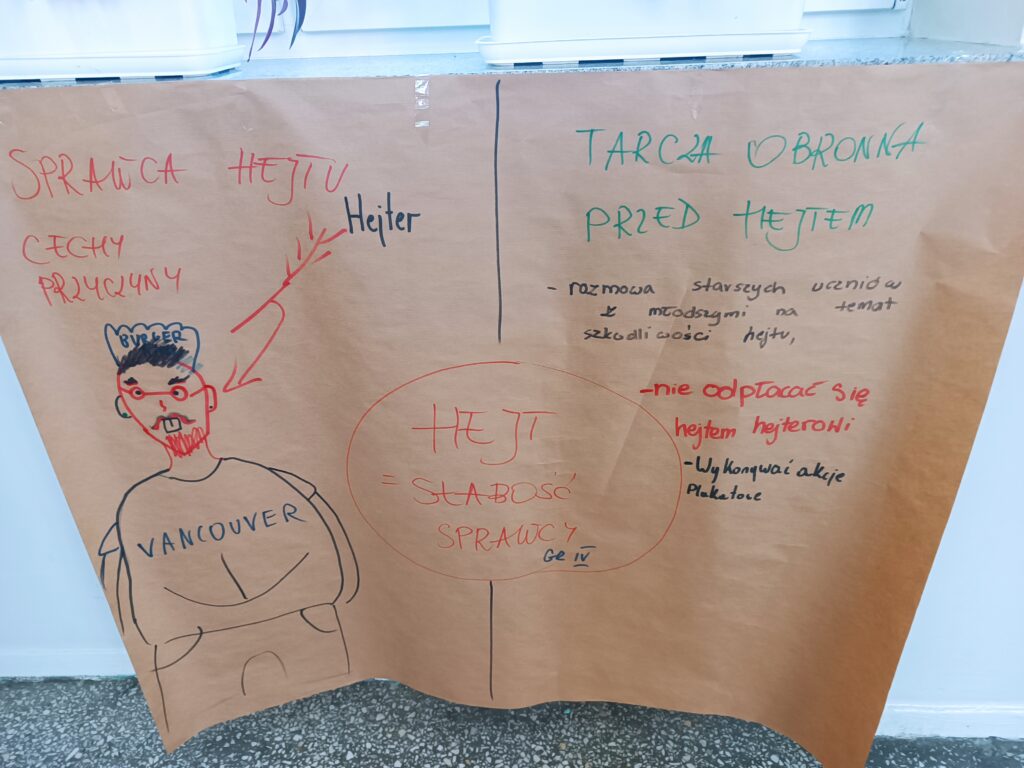 SPRAWCA HEJTU
Hejter
CECHY
PRZYCZYNY
BURGER
VANCOUVER
HEJT
= SŁABOŚĆ
SPRAWCY
GR IV
TARCZA OBRONNA
PRZED HEJTEM
- rozmowa starszych uczniów
z młodszymi na temat
szkodliwości hejtu,
-nie odpłacać się
hejtem hejterowi
-Wykonywać akcje
Plakatowe